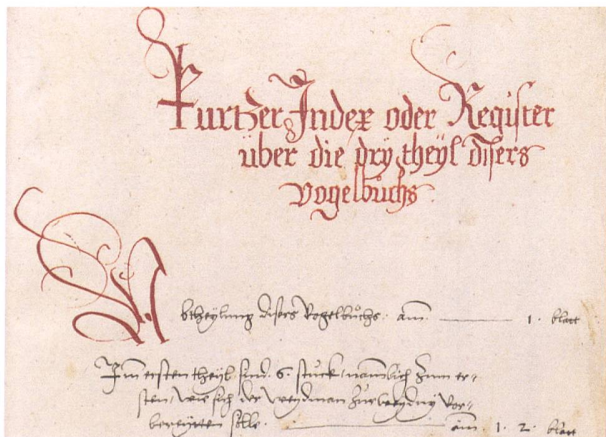 Kurtzer Index oder Register
über die dry theyl disers
vogelbůchs
Abtheylung disers Vogelbůchs. am 1. blatt
Im ersten theyl sind 6 stuck, namlich zum er-
sten, wie sich der weydman zur beyssung vor-
bereytten sölle. am 1. 2. blatt